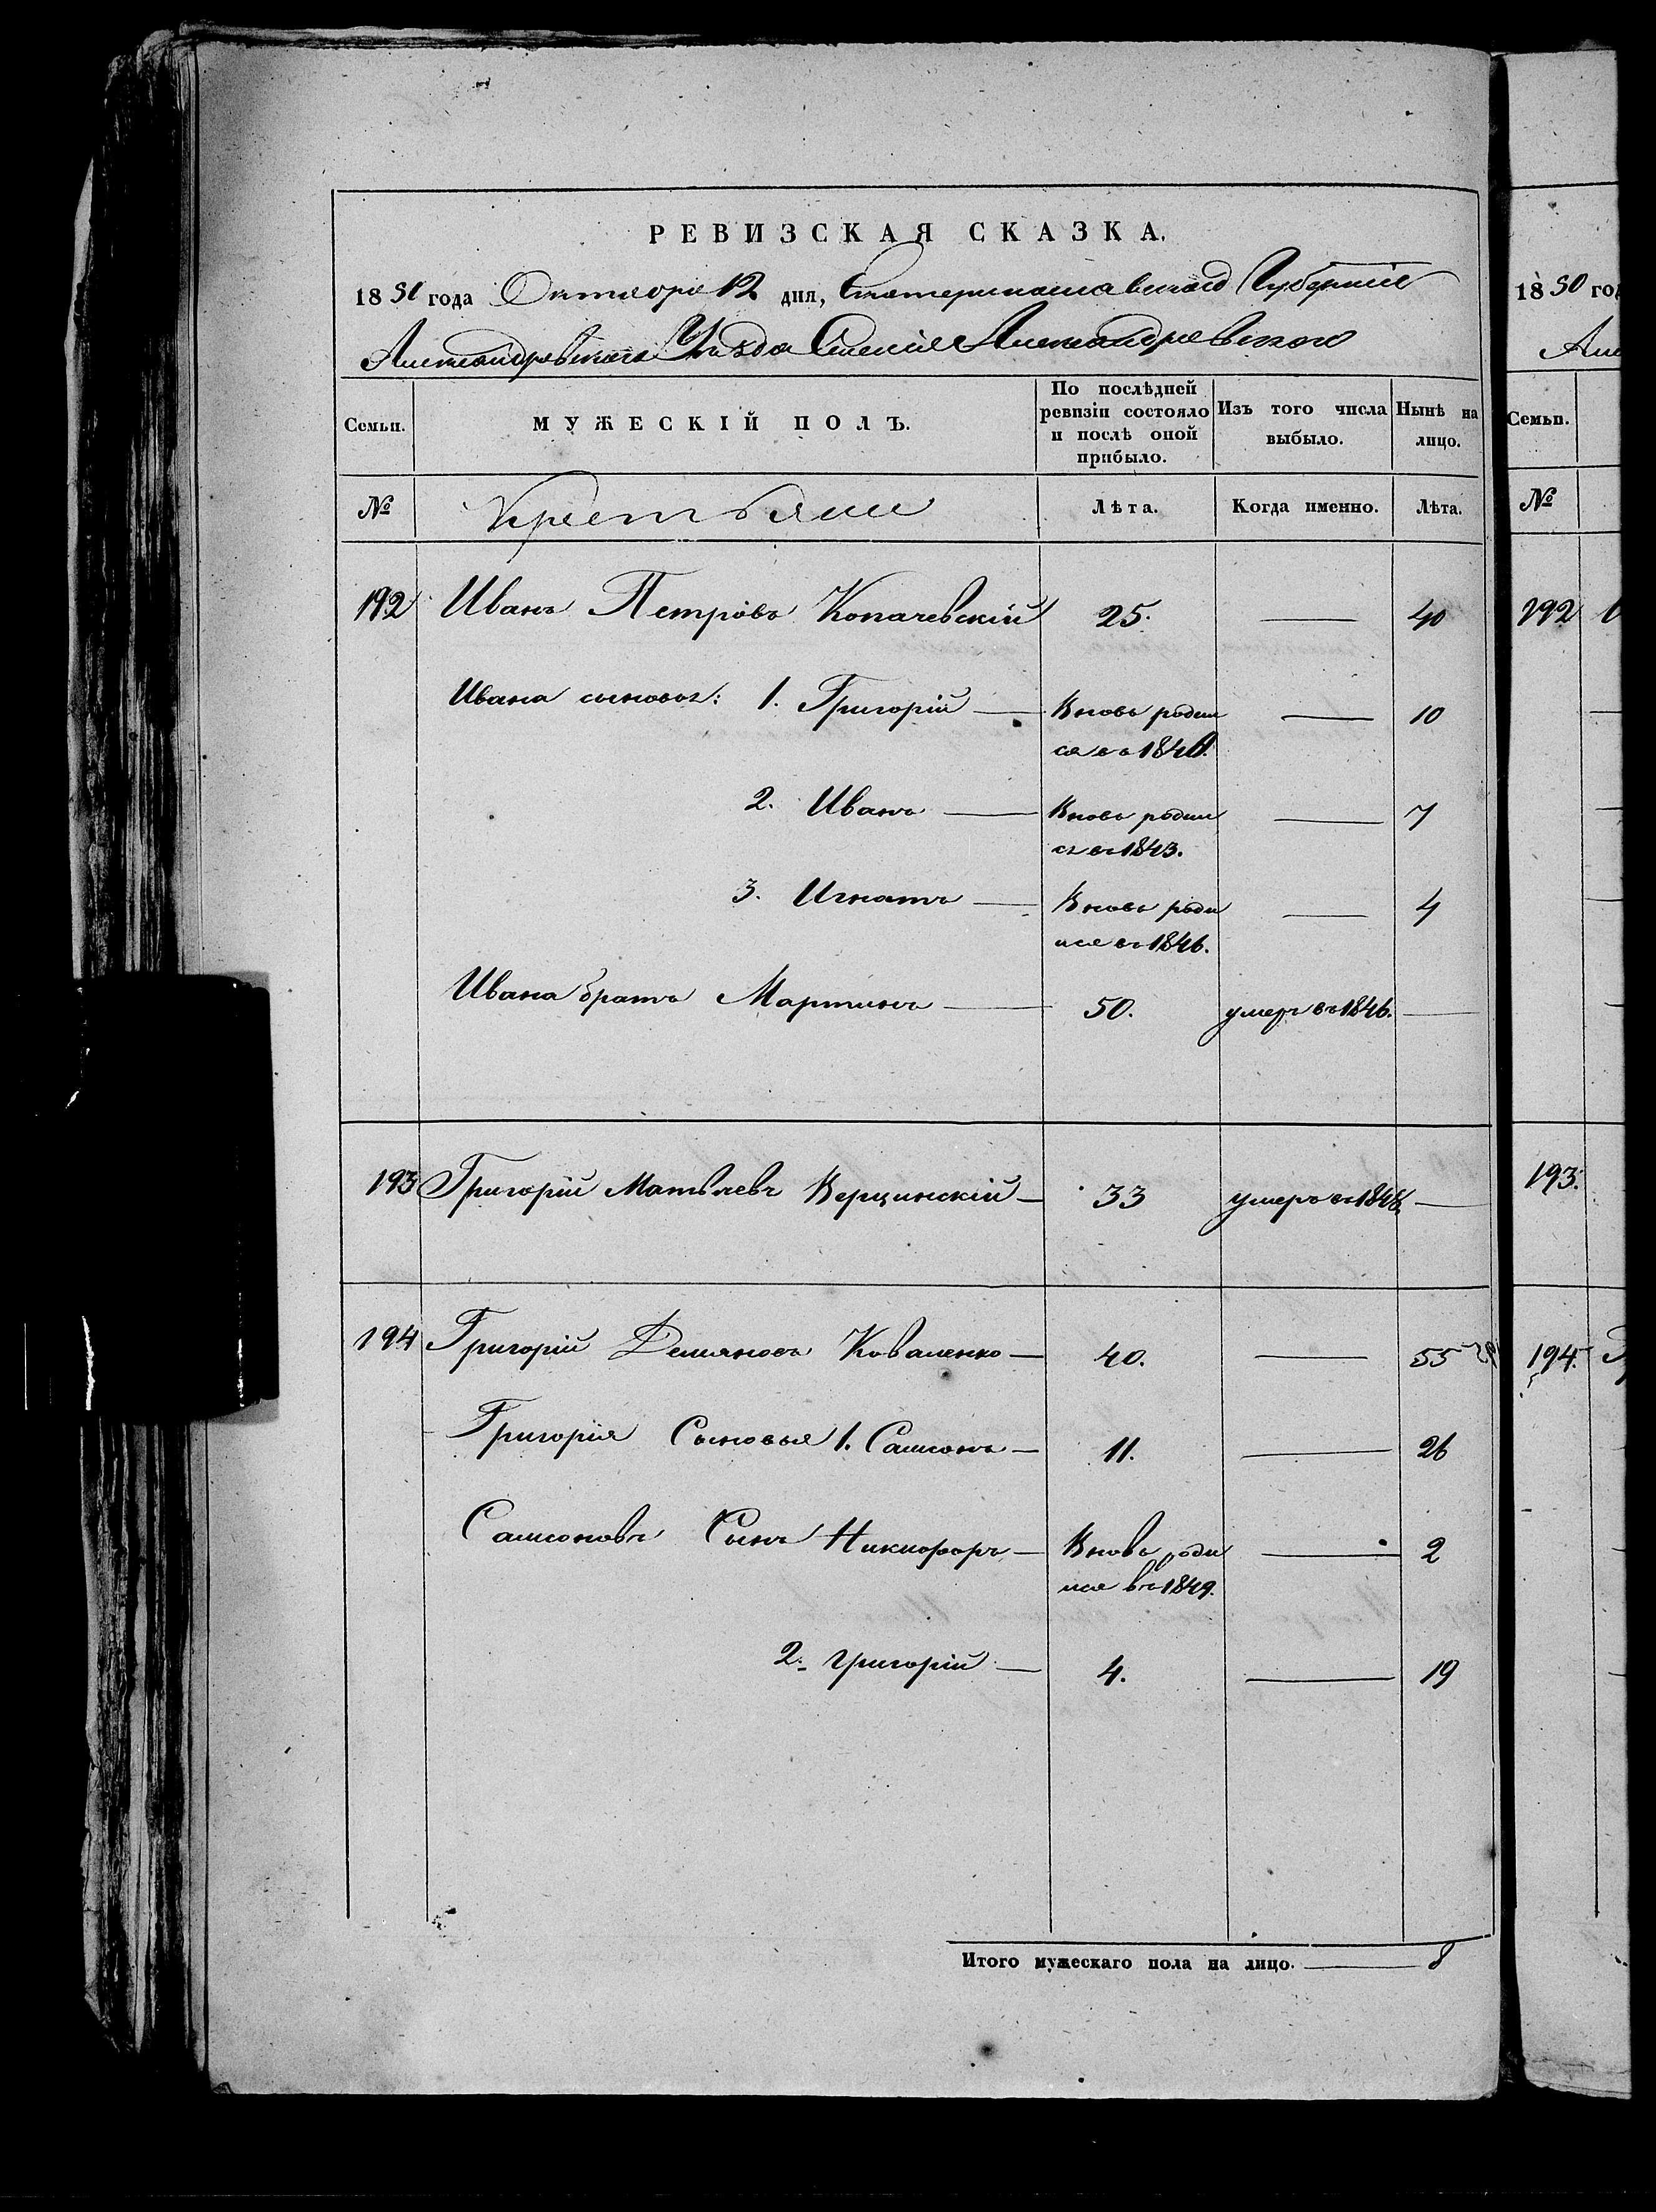 РЕВИЗСКАЯ СКАЗКА.
1850 года Октября 12 дня, Екатеринославской Губернии
Александровского Уезда Имения Александровского
Семьи. МУЖЕСКІЙ ПОЛЪ. По послѣдней ревизіи состояло и послѣ оной прибыло. Изъ того числа выбыло. Нынѣ на лицо.
№ Крестьяне Лѣта. Когда именно. Лѣта.
192 Иванъ Петровъ Копачевскій 25. — 40
Ивана сыновья: 1. Григорій — Вновь родил — 10
ся въ 1840.
2. Иванъ — Вновь родил — 7
ся въ 1843.
3. Игнатъ — Вновь роди — 4
лся въ 1846.
Ивана братъ Мартинъ — 50. умеръ въ 1846. —
193 Григорій Матвѣевъ Верцинскій — 33 умеръ въ 1848 —
194 Григорій Демяновъ Коваленко — 40. — 55
Григорія Сыновья 1. Самсонъ — 11. — 26
Самсоновъ Сынъ Никифоръ — Вновь роди — 2
лся въ 1849.
2. Григорій — 4. — 19
Итого мужескаго пола на лицо. — 8
1850 год
Але
Семьи.
№
192
193.
194.